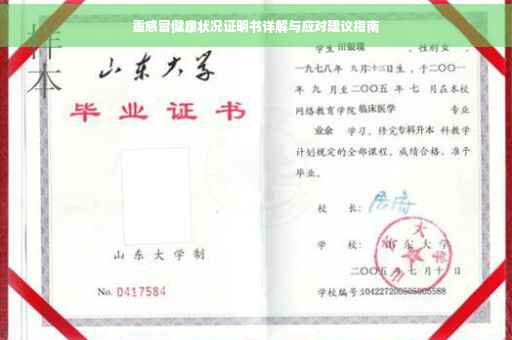 重感冒健康状况证明书详解与应对建议指南
样本
山东大学
毕业证书
山东大学制
No. 0417584
学生 田银瑞 ，性别 女 ，
一九七八年 九月十三日生，于二〇〇一
年 九 月至二〇〇五 年 七 月在本校
网络教育学院 临床医学 专业
业余 学习，修完专科升本 科教学
计划规定的全部课程，成绩合格，准予
毕业。
校 长：
学 校： 山东大学
二〇〇五年七月十日
学校编号:104227200505005588